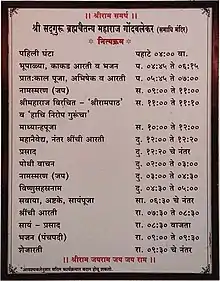 ॥ श्रीराम समर्थ ॥
श्री सद्गुरू ब्रह्मचैतन्य महाराज गोंदवलेकर (समाधि मंदिर)
॥ नित्यक्रम ॥
पहिली घंटा पहाटे ०४:०० वा.
भूपाळ्या, काकड आरती व भजन प. ०४:४५ ते ०६:१५
प्रातःकाल पूजा, अभिषेक व आरती प. ०५:४५ ते ०७:००
नामस्मरण (जप) स. ०९:०० ते ११:००
श्रीमहाराज विरचित - 'श्रीरामपाठ' स. ११:०० ते ११:१०
व 'हाचि निरोप गुरूंचा'
माध्यान्हपूजा स. १०:०० ते १२:००
महानैवेद्य, नंतर श्रींची आरती दु. १२:०० ते १२:२०
प्रसाद दु. १२:२० ते नंतर
पोथी वाचन दु. ०२:०० ते ०३:००
नामस्मरण (जप) दु. ०३:०० ते ०४:३०
विष्णुसहस्रनाम दु. ०४:३० ते ०५:००
सवाया, अष्टके, सायंपूजा सा. ०६:३० चे नंतर
श्रींची आरती रा. ०७:३० ते ०८:३०
सायं - प्रसाद रा. ०८:३० वाजता
भजन (पंचपदी) रा. ०९:०० ते ०९:३०
शेजारती रा. ०९:३० चे नंतर
॥ श्रीराम जयराम जय जय राम ॥